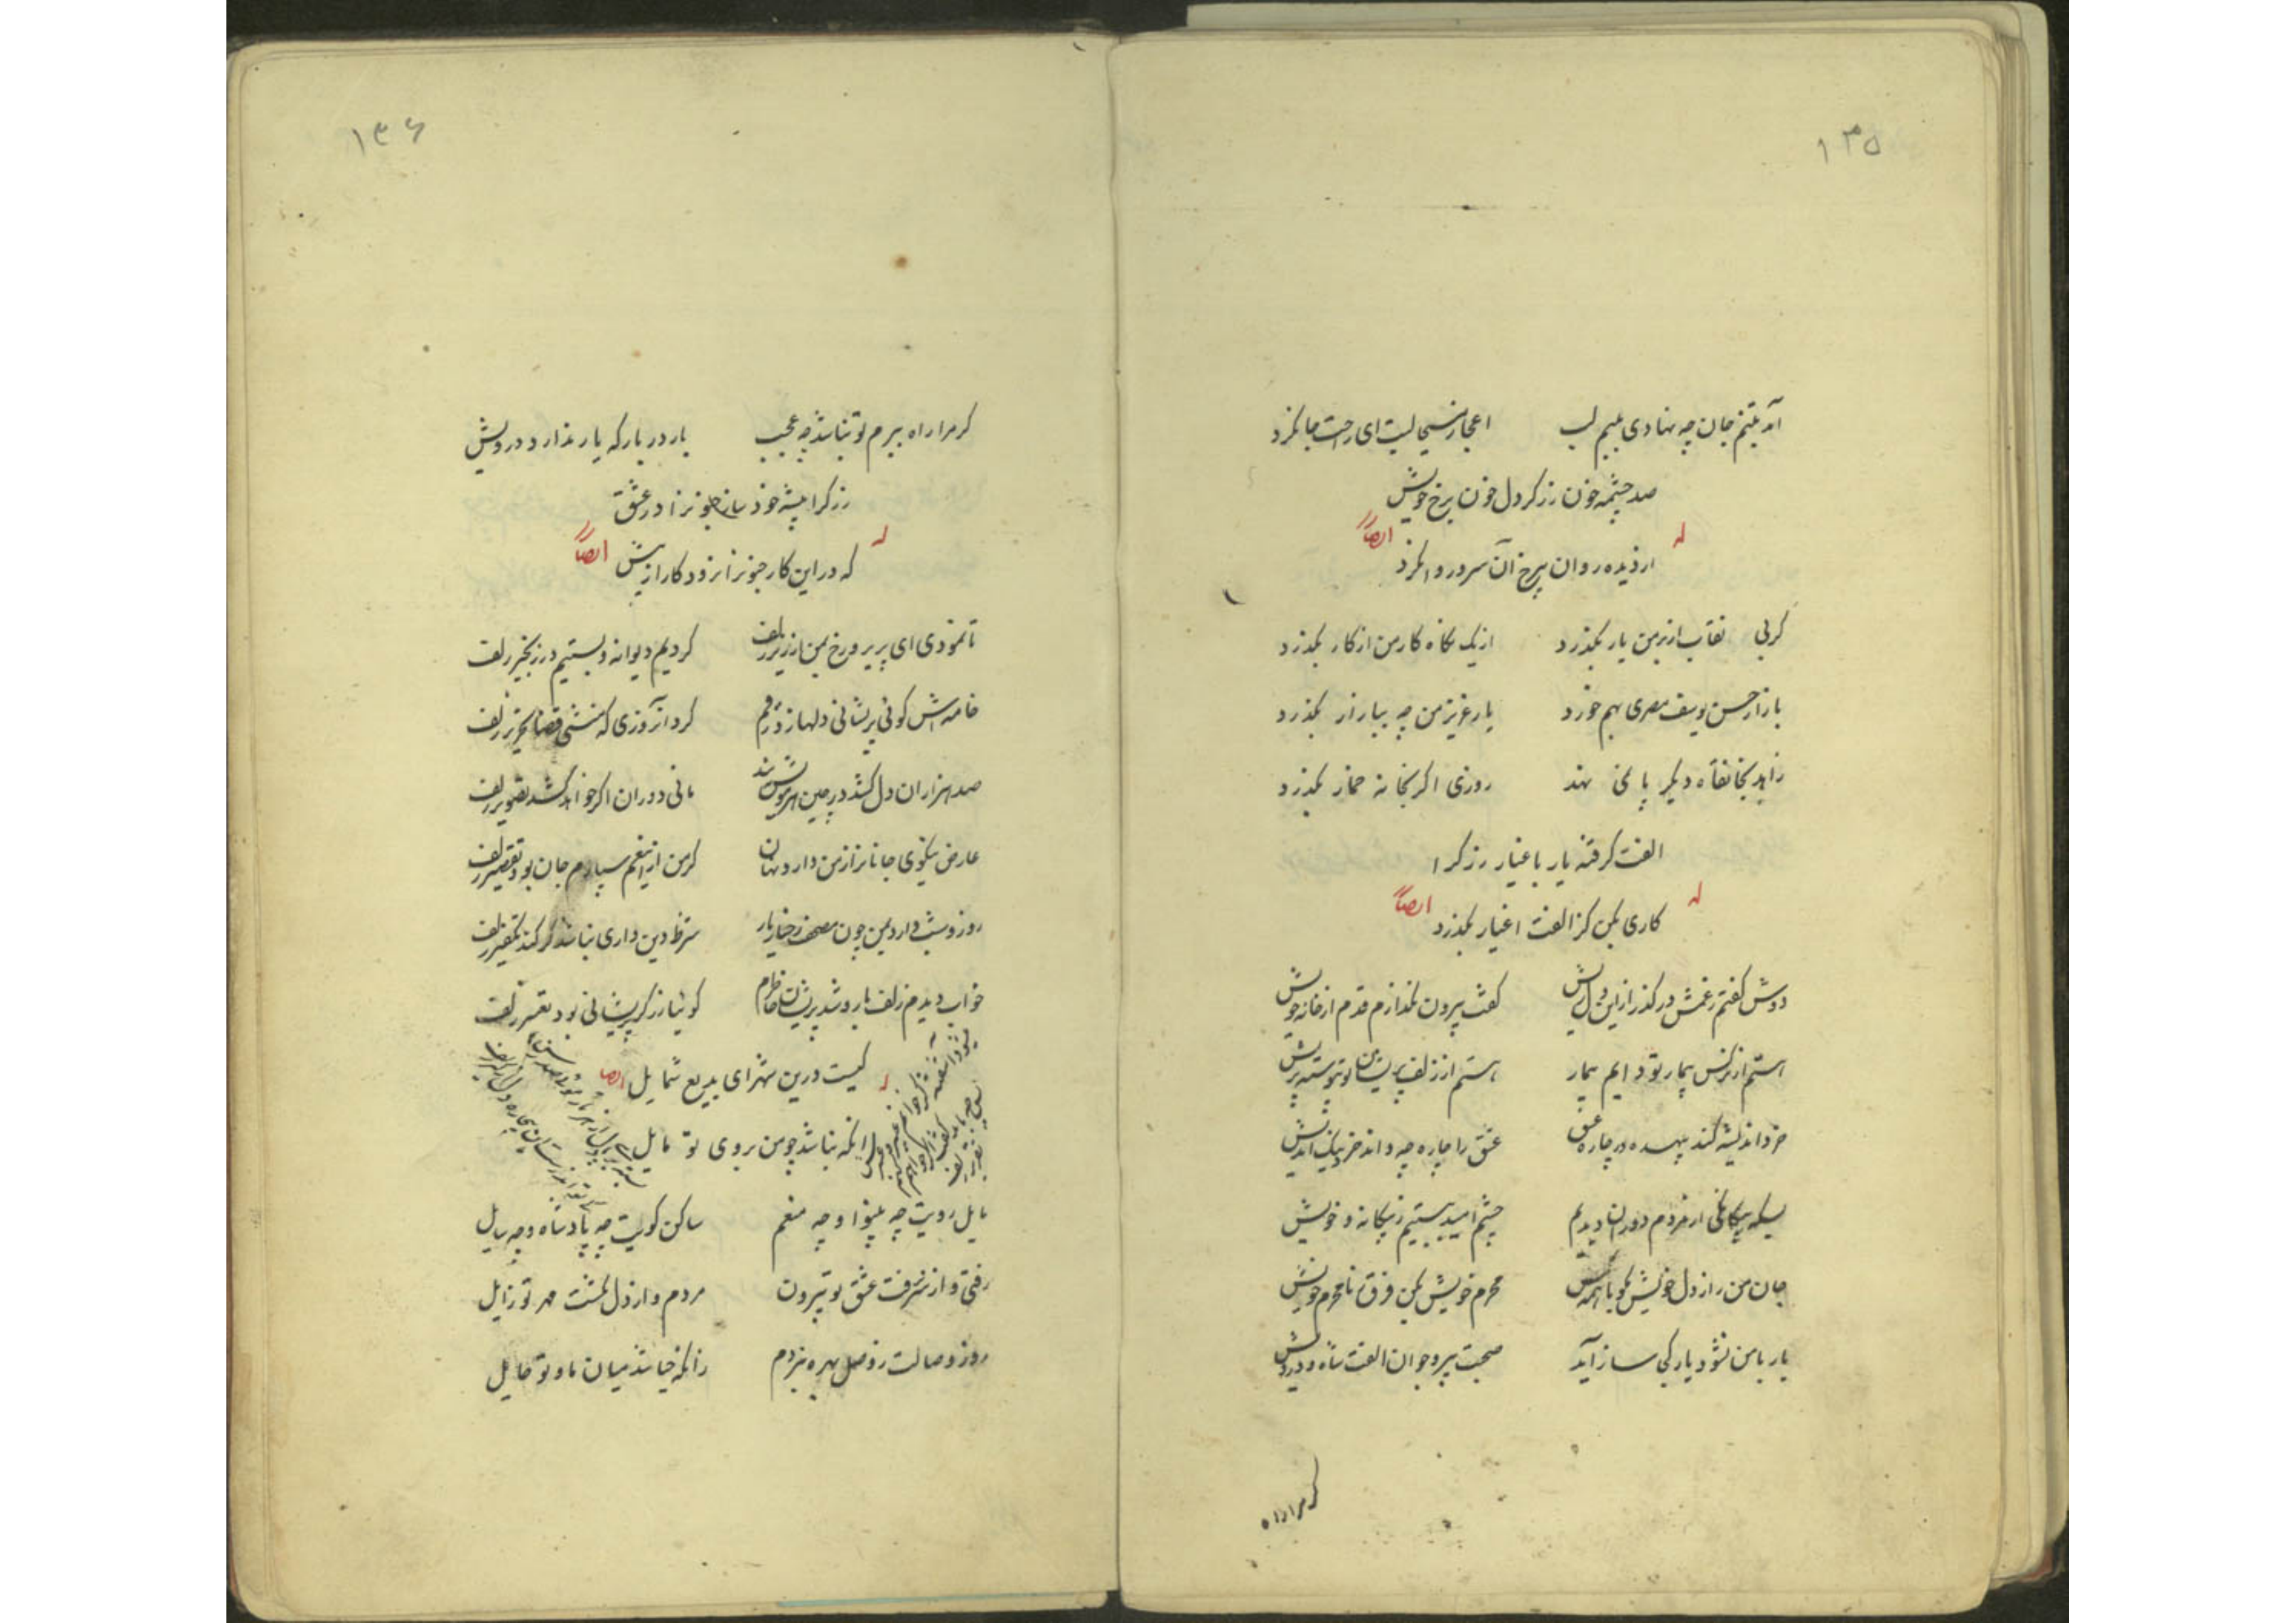 ۱۳۵
آمد بتنم جان چه نهادی بلبم لب اعجاز مسیحا لبت ای راحت جان کرد
صد چشمه خون رزکر دل خون برخ خویش
از دیده روان بیرخ آن سرو روان کرد
له ایضاً
گر بی نقاب از بر من یار بگذرد از یک نگاه کار من از کار بگذرد
بازار حسن یوسف مصری بهم خورد یار عزیز من چه ببازار بگذرد
زاهد بخانقاه دیگر پا نمی نهد روزی اگر بخانه خمار بگذرد
الفت گرفته یار باغیار رزکرا
کاری بکن کز الفت اغیار بگذرد
له ایضاً
دوش گفتم زغمش درگذر از این دل ریش گفت بیرون نگذارم قدم از خانه خویش
هستم از نرگس بیمار تو دایم بیمار هستم از زلف پریشان تو پیوسته پریش
خرد اندیشه کند بیهده در چاره عشق عشق را چاره چه داند خرد نیک اندیش
بسکه بیگانگی از مردم دوران دیدیم چشم امید ببستیم ز بیگانه و خویش
جان من راز دل خویش مگو با همه کس محرم خویش بکن فرق ز نامحرم خویش
یار با من نشود یار کی ساز آید صحبت پیر و جوان الفت شاه و درویش
گر مرا راه
۱۳۶
گر مرا راه ببزم تو نباشد چه عجب بار در بارگه یار ندارد درویش
رزکرا پیشه خود ساز جنونرا در عشق
که در این کار جنونرا نرود کار از پیش
له ایضاً
تا نمودی ای پریرو رخ بمن از زیر زلف کردیم دیوانه و بستیم در زنجیر زلف
خامه اش گوئی پریشانی دلها زد رقم کرد آنروزی که منشی قضا تحریر زلف
صد هزاران دل کشد در چین مانی دوران اگر خواهد کشد تصویر زلف
عارض نیکوی جانانرا ز من دارد نهان گر من از این غم سپارم جان بود تقصیر زلف
روز و شب دارد بمن چون مصحف رخسار یار شرط دین داری نباشد گر کند تکفیر زلف
خواب دیدم زلف یار و شد پریشان خاطرم گوئیا رزکر پریشانی بود تعبیر زلف
له ایضا
کیست درین شهر ای بدیع شمایل
آنکه نباشد چو من بروی تو مایل
مایل رویت چه بینوا و چه منعم ساکن کویت چه پادشاه و چه سایل
رفتی و از سر نرفت عشق تو بیرون مردم و از دل نگشت مهر تو زایل
روز وصالت ز وصل بهره نبردم زانکه حیا شد میان ما و تو حایل